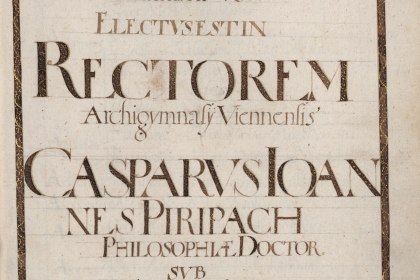 ELECTVS EST IN
RECTOREM
Archigymnasÿ Viennensis
CASPARVS IOAN
NES PIRIPACH
PHILOSOPHIÆ DOCTOR.
SVB